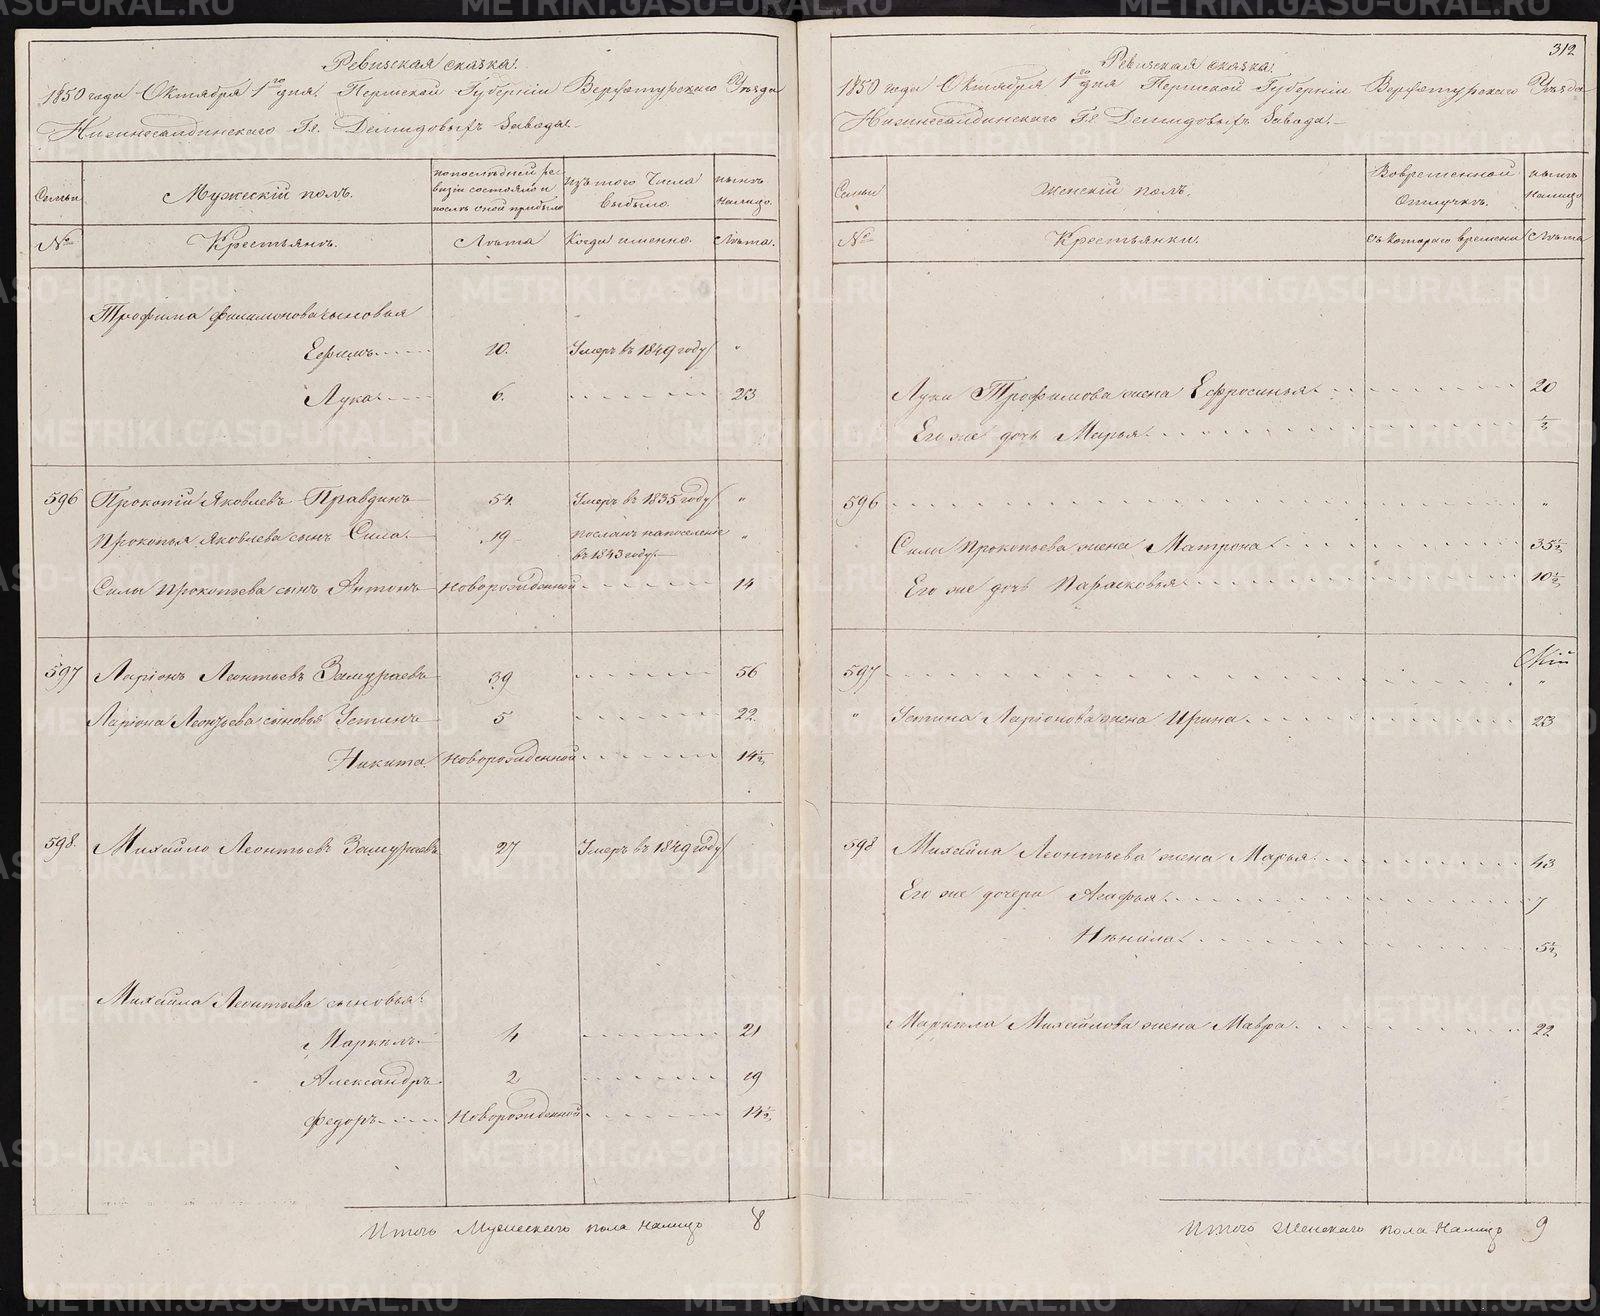 Ревизская сказка.
1850 года Октября 1го дня. Пермской Губернии Верхотурского Уѣзда
Нижнесалдинскаго Гг. Демидовыхъ Завода.
Семьи
Мужескій полъ.
По послѣдней ре-
визіи состояло и
послѣ оной прибыло
Изъ того Числа
выбыло.
нынѣ
налицо.
№
Крестьянъ.
Лѣта
Когда именно.
Лѣта.
Трофима Филимонова сыновья
Ефимъ 10. Умеръ въ 1849 году „
Лука 6. 23
596 Прокопій Яковлевъ Правдинъ 54. Умеръ въ 1835 году „
Прокопья Яковлева сынъ Сила 19 посланъ на поселеніе „
въ 1843 году.
Силы Прокопьева сынъ Антонъ Новорожденной 14
597 Ларіонъ Леонтьевъ Замураевъ 39 56
Ларіона Леонтьева сыновья Устинъ 5 22.
Никита Новорожденной 14½
598. Михайло Леонтьевъ Замураевъ 27 Умеръ въ 1849 году
Михайла Леонтьева сыновья:
Маркелъ 4 21
Александръ 2 19
Федоръ Новорожденной 14½
Итого Мужескаго пола налицо 8
312
Ревизская сказка.
1850 года Октября 1го дня Пермской Губерніи Верхотурского Уѣзда
Нижнесалдинскаго Гг. Демидовыхъ Завода.
Семьи
Женскій полъ.
Во временной
Отлучкѣ.
нынѣ
налицо
№
Крестьянки.
съ котораго времени
Лѣта
Луки Трофимова жена Ефросинья 20
Его же дочь Марья ½
596 „
Силы Прокопьева жена Матрона 35½
Его же дочь Парасковья 10½
597 „
„ Устина Ларіонова жена Ирина 23
598 Михайла Леонтьева жена Марья 43
Его же дочери Агафья 7
Нѣнила 5½
Маркела Михайлова жена Мавра 22
Итого Женскаго пола налицо 9
METRIKI.GASO-URAL.RU